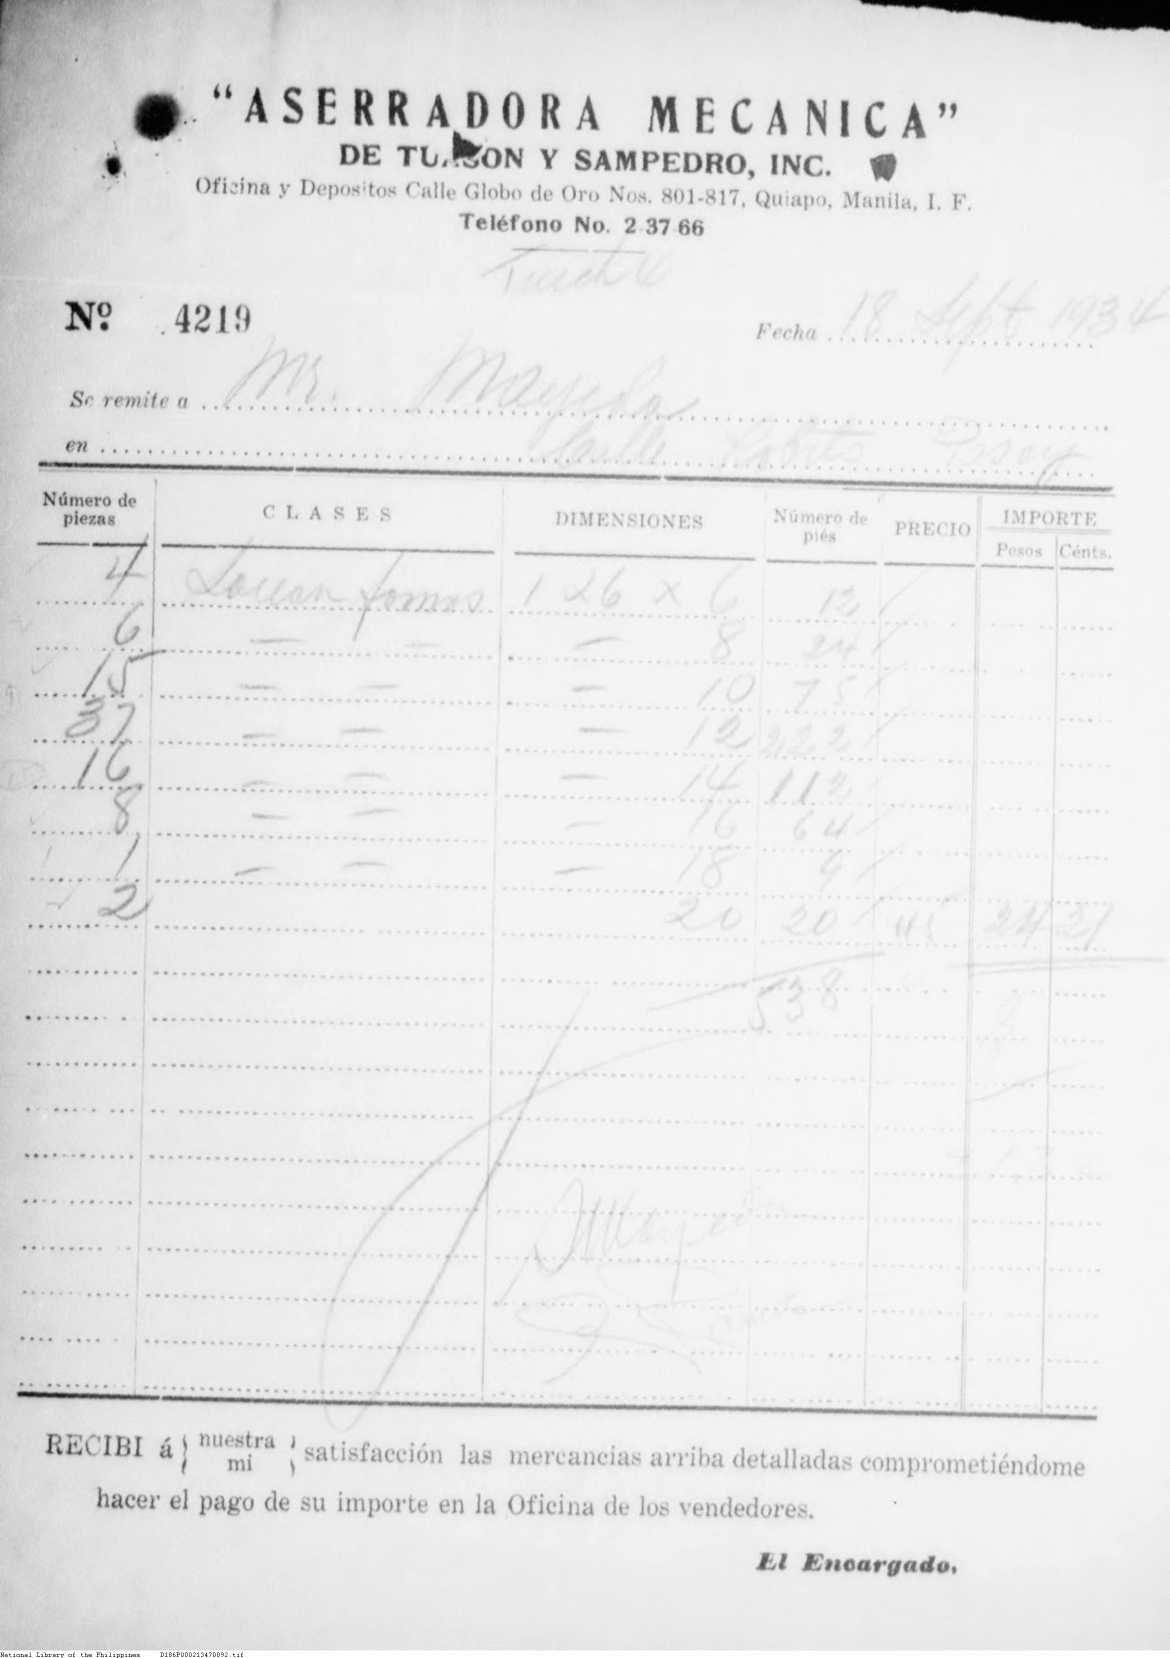 "ASERRADORA MECANICA"
DE TUASON Y SAMPEDRO, INC.
Oficina y Depositos Calle Globo de Oro Nos. 801-817, Quiapo, Manila, I. F.
Teléfono No. 2 37 66
Nº. 4219
Fecha 18 Sept 1934
Se remite a Mr.
en Calle Pasay
Número de piezas CLASES DIMENSIONES Número de piés PRECIO IMPORTE
Pesos Cénts.
4 Lauan 1 x 6 x 6 12
6 — — — 8 24
15 — — — 10 75
37 — — — 12 222
16 — — — 14 112
8 — — — 16 64
1 — — — 18 9
2 20 20 45 24 21
538
RECIBI á nuestra satisfacción las mercancias arriba detalladas comprometiéndome
mi
hacer el pago de su importe en la Oficina de los vendedores.
El Encargado.
National Library of the Philippines D186P000213470892.tif